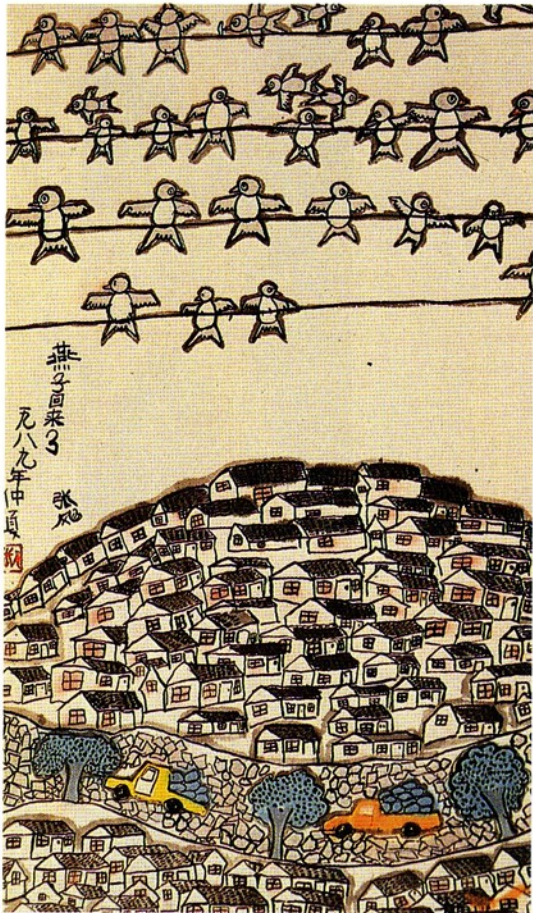 燕子回来了
一九八九年仲夏
张